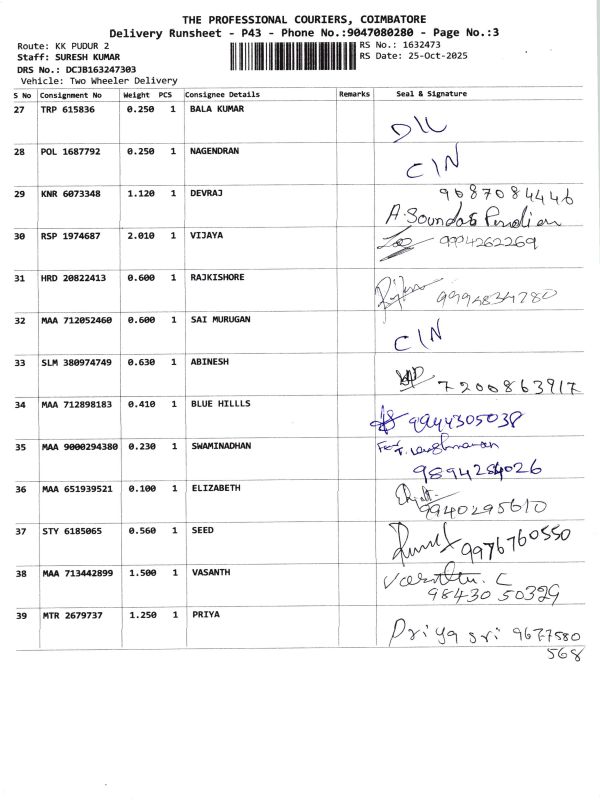 THE PROFESSIONAL COURIERS, COIMBATORE
Delivery Runsheet - P43 - Phone No.:9047080280 - Page No.:3
Route: KK PUDUR 2 RS No.: 1632473
Staff: SURESH KUMAR RS Date: 25-Oct-2025
DRS No.: DCJB163247303
Vehicle: Two Wheeler Delivery
S No Consignment No Weight PCS Consignee Details Remarks Seal & Signature
27 TRP 615836 0.250 1 BALA KUMAR
D\L
28 POL 1687792 0.250 1 NAGENDRAN
C\N
29 KNR 6073348 1.120 1 DEVRAJ 9687084446
A. Soundar Pandian
30 RSP 1974687 2.010 1 VIJAYA
9994262269
31 HRD 20822413 0.600 1 RAJKISHORE
9994834780
32 MAA 712052460 0.600 1 SAI MURUGAN
C\N
33 SLM 380974749 0.630 1 ABINESH
7200863917
34 MAA 712898183 0.410 1 BLUE HILLLS
9944305038
35 MAA 9000294380 0.230 1 SWAMINADHAN
9894284026
36 MAA 651939521 0.100 1 ELIZABETH
9940295610
37 STY 6185065 0.560 1 SEED
9976760550
38 MAA 713442899 1.500 1 VASANTH
98430 50329
39 MTR 2679737 1.250 1 PRIYA
Priya sri 9677580
568